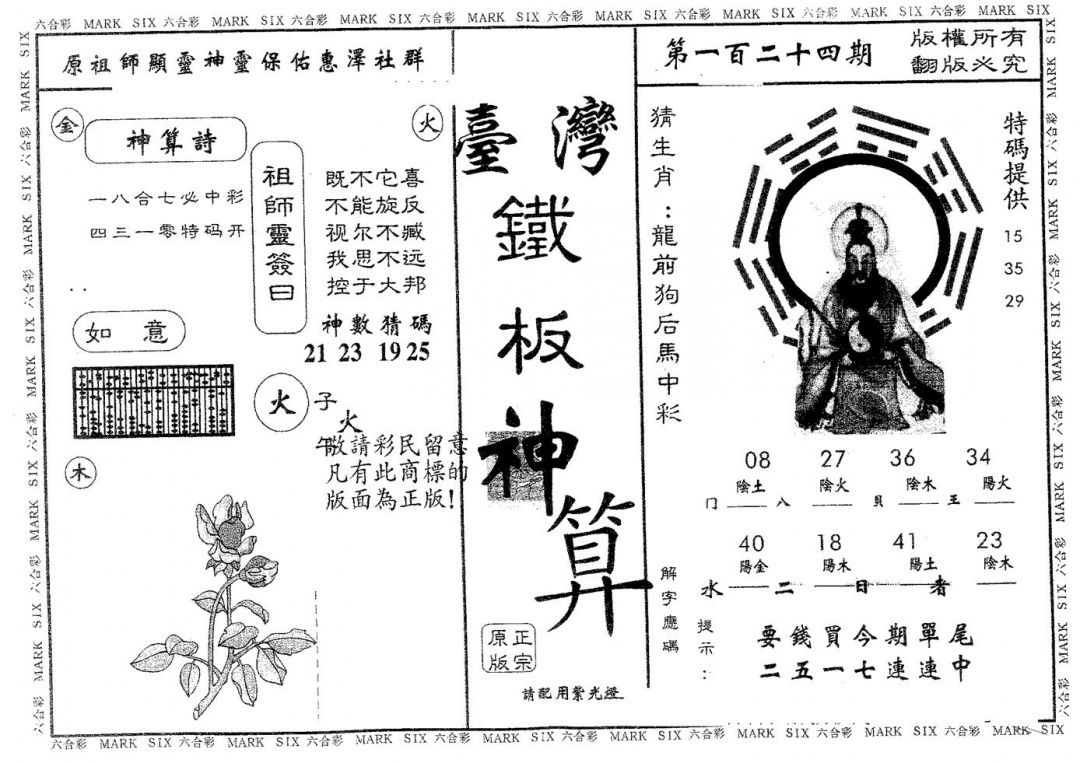 六合彩 MARK SIX 六合彩 MARK SIX 六合彩 MARK SIX 六合彩 MARK SIX 六合彩 MARK SIX 六合彩 MARK SIX 六合彩 MARK SIX 六合彩 MARK SIX
原祖師顯靈神靈保佑惠澤社群
第一百二十四期
版權所有
翻版必究
金
神算詩
火
一八合七必中彩
四三一零特码开
祖師靈簽曰
既不它喜
不能旋反
视尔不臧
我思不远
控于大邦
神數猜碼
21 23 19 25
如意
火
子
火
午
敬請彩民留意
凡有此商標的
版面為正版!
木
臺灣
鐵
板
神
算
正宗
原版
請配用紫光燈
猜生肖:龍前狗后馬中彩
特碼提供
15
35
29
08 27 36 34
陰土 陰火 陰木 陽火
门 八 貝 王
40 18 41 23
陽金 陽木 陽土 陰木
水 二 日 者
解字應碼
提示:
要錢買今期單尾
二五一七連連中
六合彩 MARK SIX 六合彩 MARK SIX 六合彩 MARK SIX 六合彩 MARK SIX 六合彩 MARK SIX 六合彩 MARK SIX 六合彩 MARK SIX 六合彩 MARK SIX